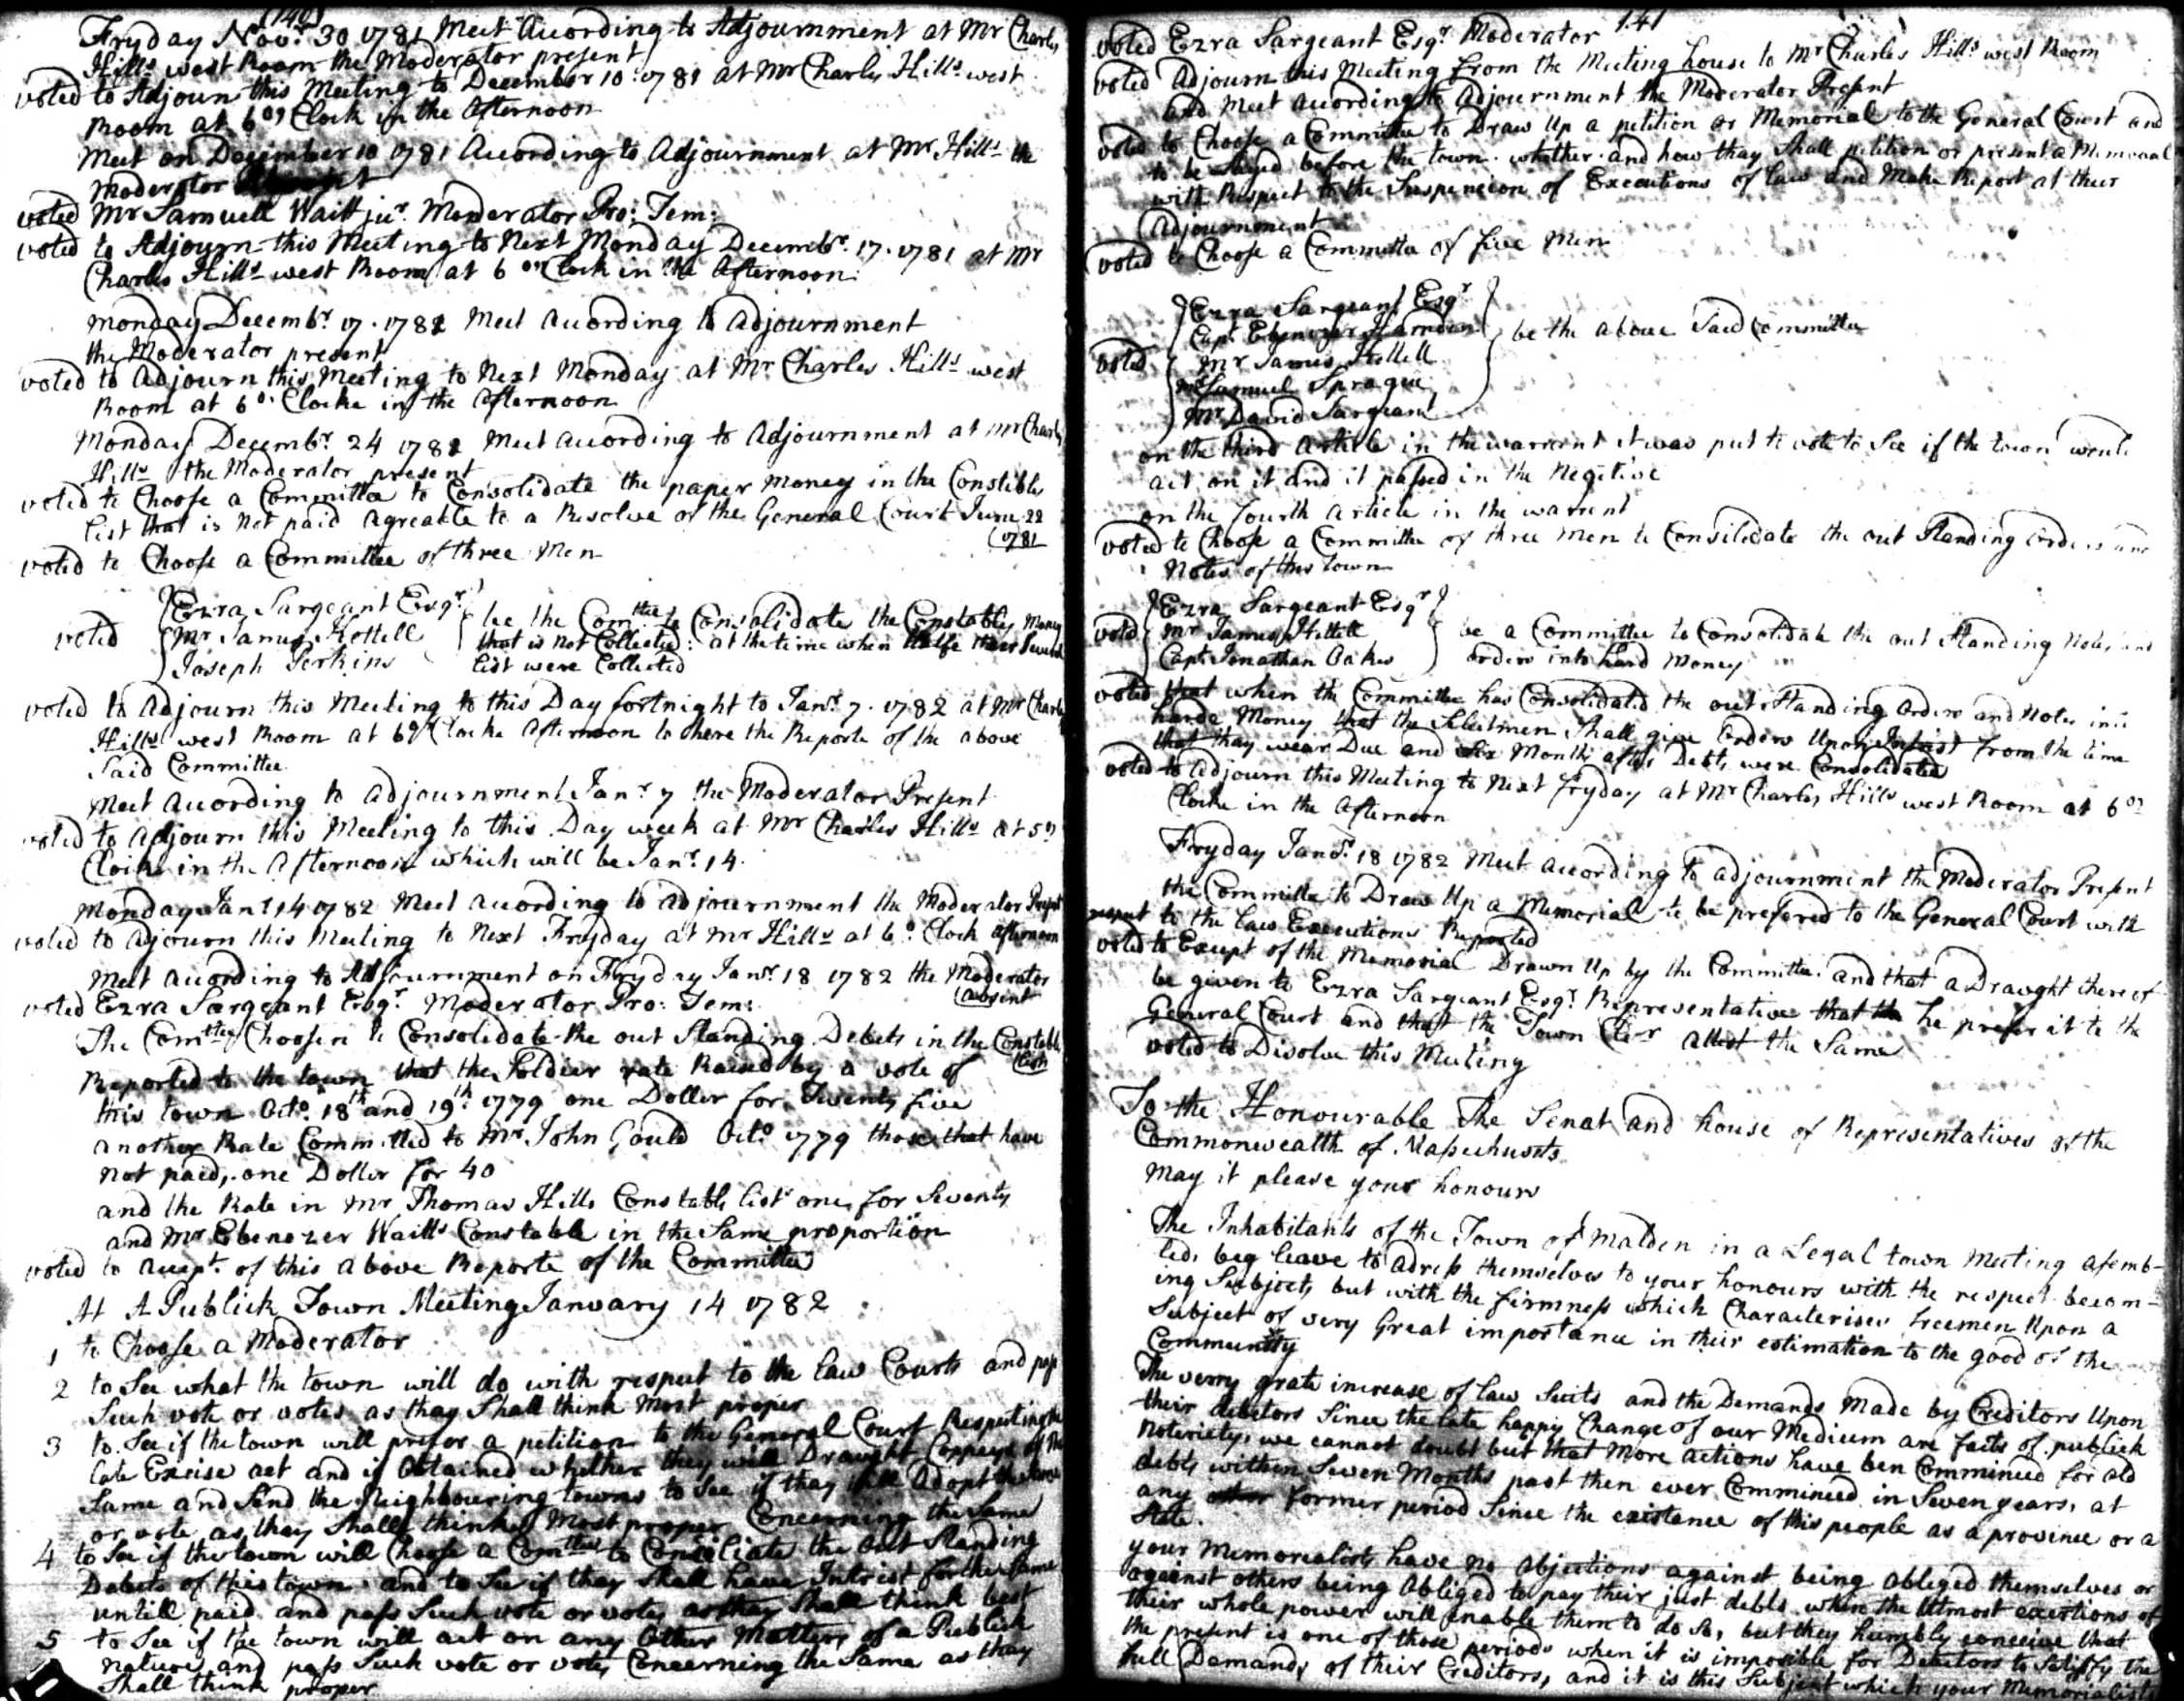 (140)
Fryday Novr. 30 1781 Meet Acording to Adjournment at Mr Charles
Hills west Room the Moderator present
voted to Adjourn this Meeting to December 10: 1781 at Mr Charles Hills west
Room at 6 on Clock in the Afternoon
Meet on December 10 1781 Acording to Adjournment at Mr. Hills the
Moderator
voted Mr Samuell Waitt jur. Moderator Pro: Tem:
voted to Adjourn this Meeting to Next Monday Decembr. 17. 1781 at Mr
Charles Hills west Room at 6 on Clock in the Afternoon:
Monday Decembr. 17. 1781 Meet acording to adjournment
the Moderator present
voted to adjourn this Meeting to Next Monday at Mr. Charles Hills west
Room at 6 o. Clocke in the afternoon
Monday Decembr. 24 1781 Meet acording to adjournment at Mr Charles
Hills the Moderator present
voted to Choose a Committee to Consolidate the paper money in the Constibles
list that is Not paid agreable to a Resolve of the General Court June 22
1781
voted to Choose a Committee of three Men
voted
Ezra Sargeant Esqr.
Mr James Kettell
Joseph Perkins
be the Comttee to Consolidate the Constables Money
that is not Collected: at the time when
list were Collected
voted to adjourn this Meeting to this Day fortnight to Janr. 7. 1782 at Mr Charles
Hills west Room at 6 on Clocke Afternoon to here the Reporte of the above
Said Committee
Meet acording to adjournment Janr 7 the Moderator Present
voted to adjourn this Meeting to this Day week at Mr Charles Hills at 5 on
Clocke in the afternoon which will be Janr. 14.
Monday Janr 14 1782 Meet acording to adjournment the Moderator Present
voted to adjourn this Meeting to Next Fryday at Mr Hills at 6 o. Clock afternoon
Meet acording to Adjournment on Fryday Janr. 18 1782 the Moderator
absent
voted Ezra Sargeant Esqr. Moderator Pro: Tem:
The Comttee Choosen to Consolidate the out Standing Debets in the Constable
lists
Reported to the town that the Soldier rate Raised by a vote of
this town Octo. 18th and 19th. 1779 one Doller for Twenty five
another Rate Committed to Mr. John Gould Octo. 1779 those that have
not paid, one Doller for 40
and the Rate in Mr Thomas Hills Constable list one for Seventy
and Mr Ebenezer Waitts Constable in the Same proportion
voted to accept. of this above Reporte of the Committee
At A Publick Town Meeting January 14 1782
1 to Choose a Moderator
2 to See what the town will do with respect to the law Courts and pass
Such vote or votes as thay Shall think Most proper
3 to See if the town will prefer a petition to the General Court Respecting the
late Excise act and if Obtained whether they will Draught Coppeys of the
Same and Send the Neighbouring towns to See if thay will adopt the same
or vote as they Shall thinke Most proper Concerning the Same
4 to See if the town will Choose a Comttee to Conciliate the Out Standing
Debets of this town and to See if thay Shall have Intrist for the same
untill paid and pass Such vote or votes as thay Shall think best
5 to See if the town will act on any Other Matters of a Publick
nature and pass Such vote or votes Concerning the Same as thay
Shall think proper
141
voted Ezra Sargeant Esqr. Moderator
voted Adjourn this Meeting from the Meeting house to Mr Charles Hills west Room
and Meet acording to Adjournment the Moderator Present
voted to Choose a Committee to Draw Up a petition or Memorial to the General Court and
to be Layed before the town. whether and how thay Shall petition or present a Memorial
with Respect to the Suspencion of Executions of law and Make Report at their
Adjournment
voted to Choose a Committe of five Men
voted
Ezra Sargeant Esqr
Capt. Ebenezer Harnden
Mr James Kettell
Mr Samuel Sprague
Mr. David Sargeant
be the above Said Committee
on the third article in the warrent it was put to vote to See if the town would
act on it and it passed in the Negitive
on the fourth article in the warrent
voted to Choose a Committee of three men to Consilidate the out Standing Orders and
Notes of this town
voted
Ezra Sargeant Esqr
Mr James Kettell
Capt. Jonathan Oakes
be a Committee to Consolidate the out Standing Notes and
orders into hard Money
voted that when the Committee has Consolidated the out Standing Orders and Notes into
harde Money that the Selectmen Shall give Orders Upon Intrist from the time
that thay wear Due and Six Months after Debts were Consolidated
voted to adjourn this Meeting to Next fryday at Mr Charles Hills west Room at 6 on
Clocke in the Afternoon
Fryday Janr. 18 1782 Meet acording to adjournment the Moderator Present
the Committe to Draw Up a Memorial to be prefered to the General Court with
respect to the law Executions Reported
voted to Except of the Memorial Drawn Up by the Committee and that a Draught there of
be given to Ezra Sargeant Esqr. Representative that he prefer it to the
General Court and that the Town Cler attest the Same
voted to Disolve this Meeting
To the Honourable The Senat and house of Representatives of the
Commonwealth of Massachusets
May it please your honours
The Inhabitants of the Town of Malden in a Legal town Meeting asemb-
led, beg leave to adress themselves to your honours with the respect becom-
ing Subjects, but with the firmness which Characterises freemen Upon a
Subject of very Great importance in their estimation to the good of the
Community
The verry grate increase of law Suits and the Demands Made by Creditors Upon
their debetors Since the late happy Change of our Medium are facts of publick
Noteriety, we cannot doubt but that More actions have ben Commineced for old
debts within Seven Months past then ever Commineed in Seven years, at
any former period Since the existence of this people as a province or a
State.
your Memorialists have no objections against being obliged themselves or
against others being Obliged to pay their just debts when the Utmost exertions of
their whole power will enable them to do So, but they humbly conceive that
the present is one of those periods when it is imposible for Debetors to Satisfy the
full Demands of their Creditors, and it is this Subject which your Memorialists